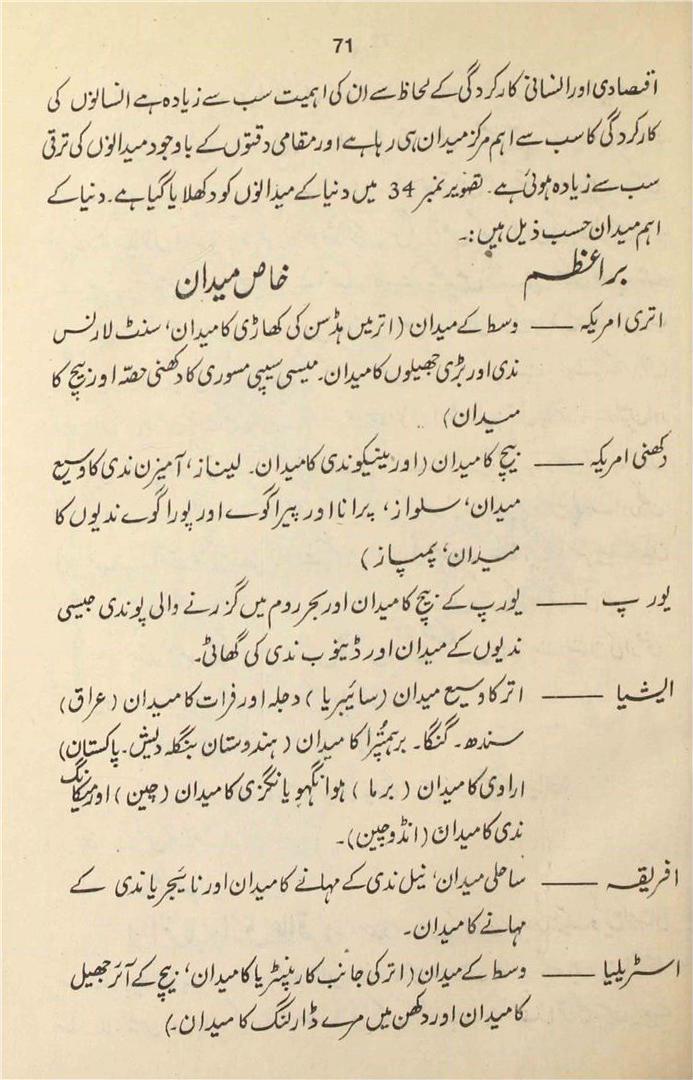 71
اقتصادی اور انسانی کارکردگی کے لحاظ سے ان کی اہمیت سب سے زیادہ ہے انسانوں کی
کارکردگی کا سب سے اہم مرکز میدان ہی رہا ہے اور مقامی دقتوں کے باوجود میدانوں کی ترقی
سب سے زیادہ ہوئی ہے۔ تصویر نمبر 34 میں دنیا کے میدانوں کو دکھلایا گیا ہے۔ دنیا کے
اہم میدان حسب ذیل ہیں :۔
براعظم خاص میدان
اتری امریکہ — وسط کے میدان (اتر میں ہڈسن کی کھاڑی کا میدان، سنٹ لارنس
ندی اور بڑی جھیلوں کا میدان۔ میسی سیپی مسوری کا دکھنی حصہ اور بیچ کا
میدان)
دکھنی امریکہ — بیچ کا میدان (اورینیکو ندی کا میدان۔ لیناز، آمیزن ندی کا وسیع
میدان، سلواز، پرانا اور پیراگوے اور پوراگوے ندیوں کا
میدان، پمپاز)
یورپ — یورپ کے بیچ کا میدان اور بحر روم میں گزرنے والی پو ندی جیسی
ندیوں کے میدان اور ڈینوب ندی کی گھاٹی۔
ایشیا — اتر کا وسیع میدان (سائیبریا) دجلہ اور فرات کا میدان (عراق)
سندھ۔ گنگا۔ برہمپُترا کا میدان (ہندوستان بنگلہ دیش۔ پاکستان)
اراوی کا میدان (برما) ہوانگہو یانگزی کا میدان (چین) اور میکانگ
ندی کا میدان (انڈوچین)۔
افریقہ — ساحلی میدان، نیل ندی کے مہانے کا میدان اور نائیجریا ندی کے
مہانے کا میدان۔
اسٹریلیا — وسط کے میدان (اتر کی جانب کارپنٹریا کا میدان، بیچ کے آئر جھیل
کا میدان اور دکھن میں مرے ڈارلنگ کا میدان۔)